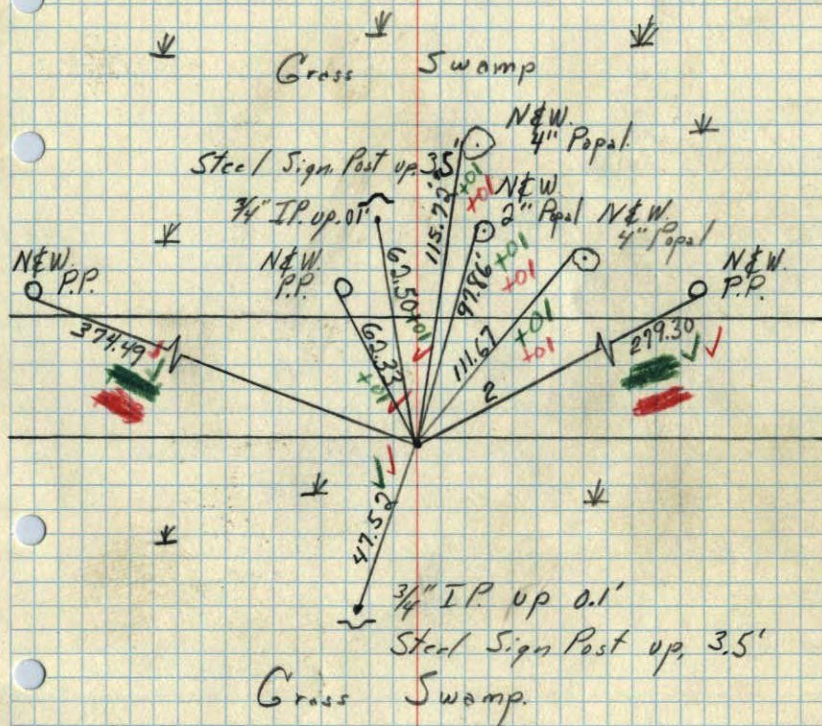 Grass Swamp
N&W.
4" Popal.
Steel Sign Post up 3.5'
3/4" I.P. up .01'
N&W.
2" Popal
N&W.
4" Popal
N&W.
P.P.
N&W.
P.P.
N&W.
P.P.
115.72'
+01
+01
62.50
+01
✓
97.86'
+01
+01
111.67
+01
+01
374.49
✓
✓
62.33
+01
✓
279.30
✓
✓
2
47.52
✓
✓
3/4" I.P. up 0.1'
Steel Sign Post up, 3.5'
Grass Swamp.